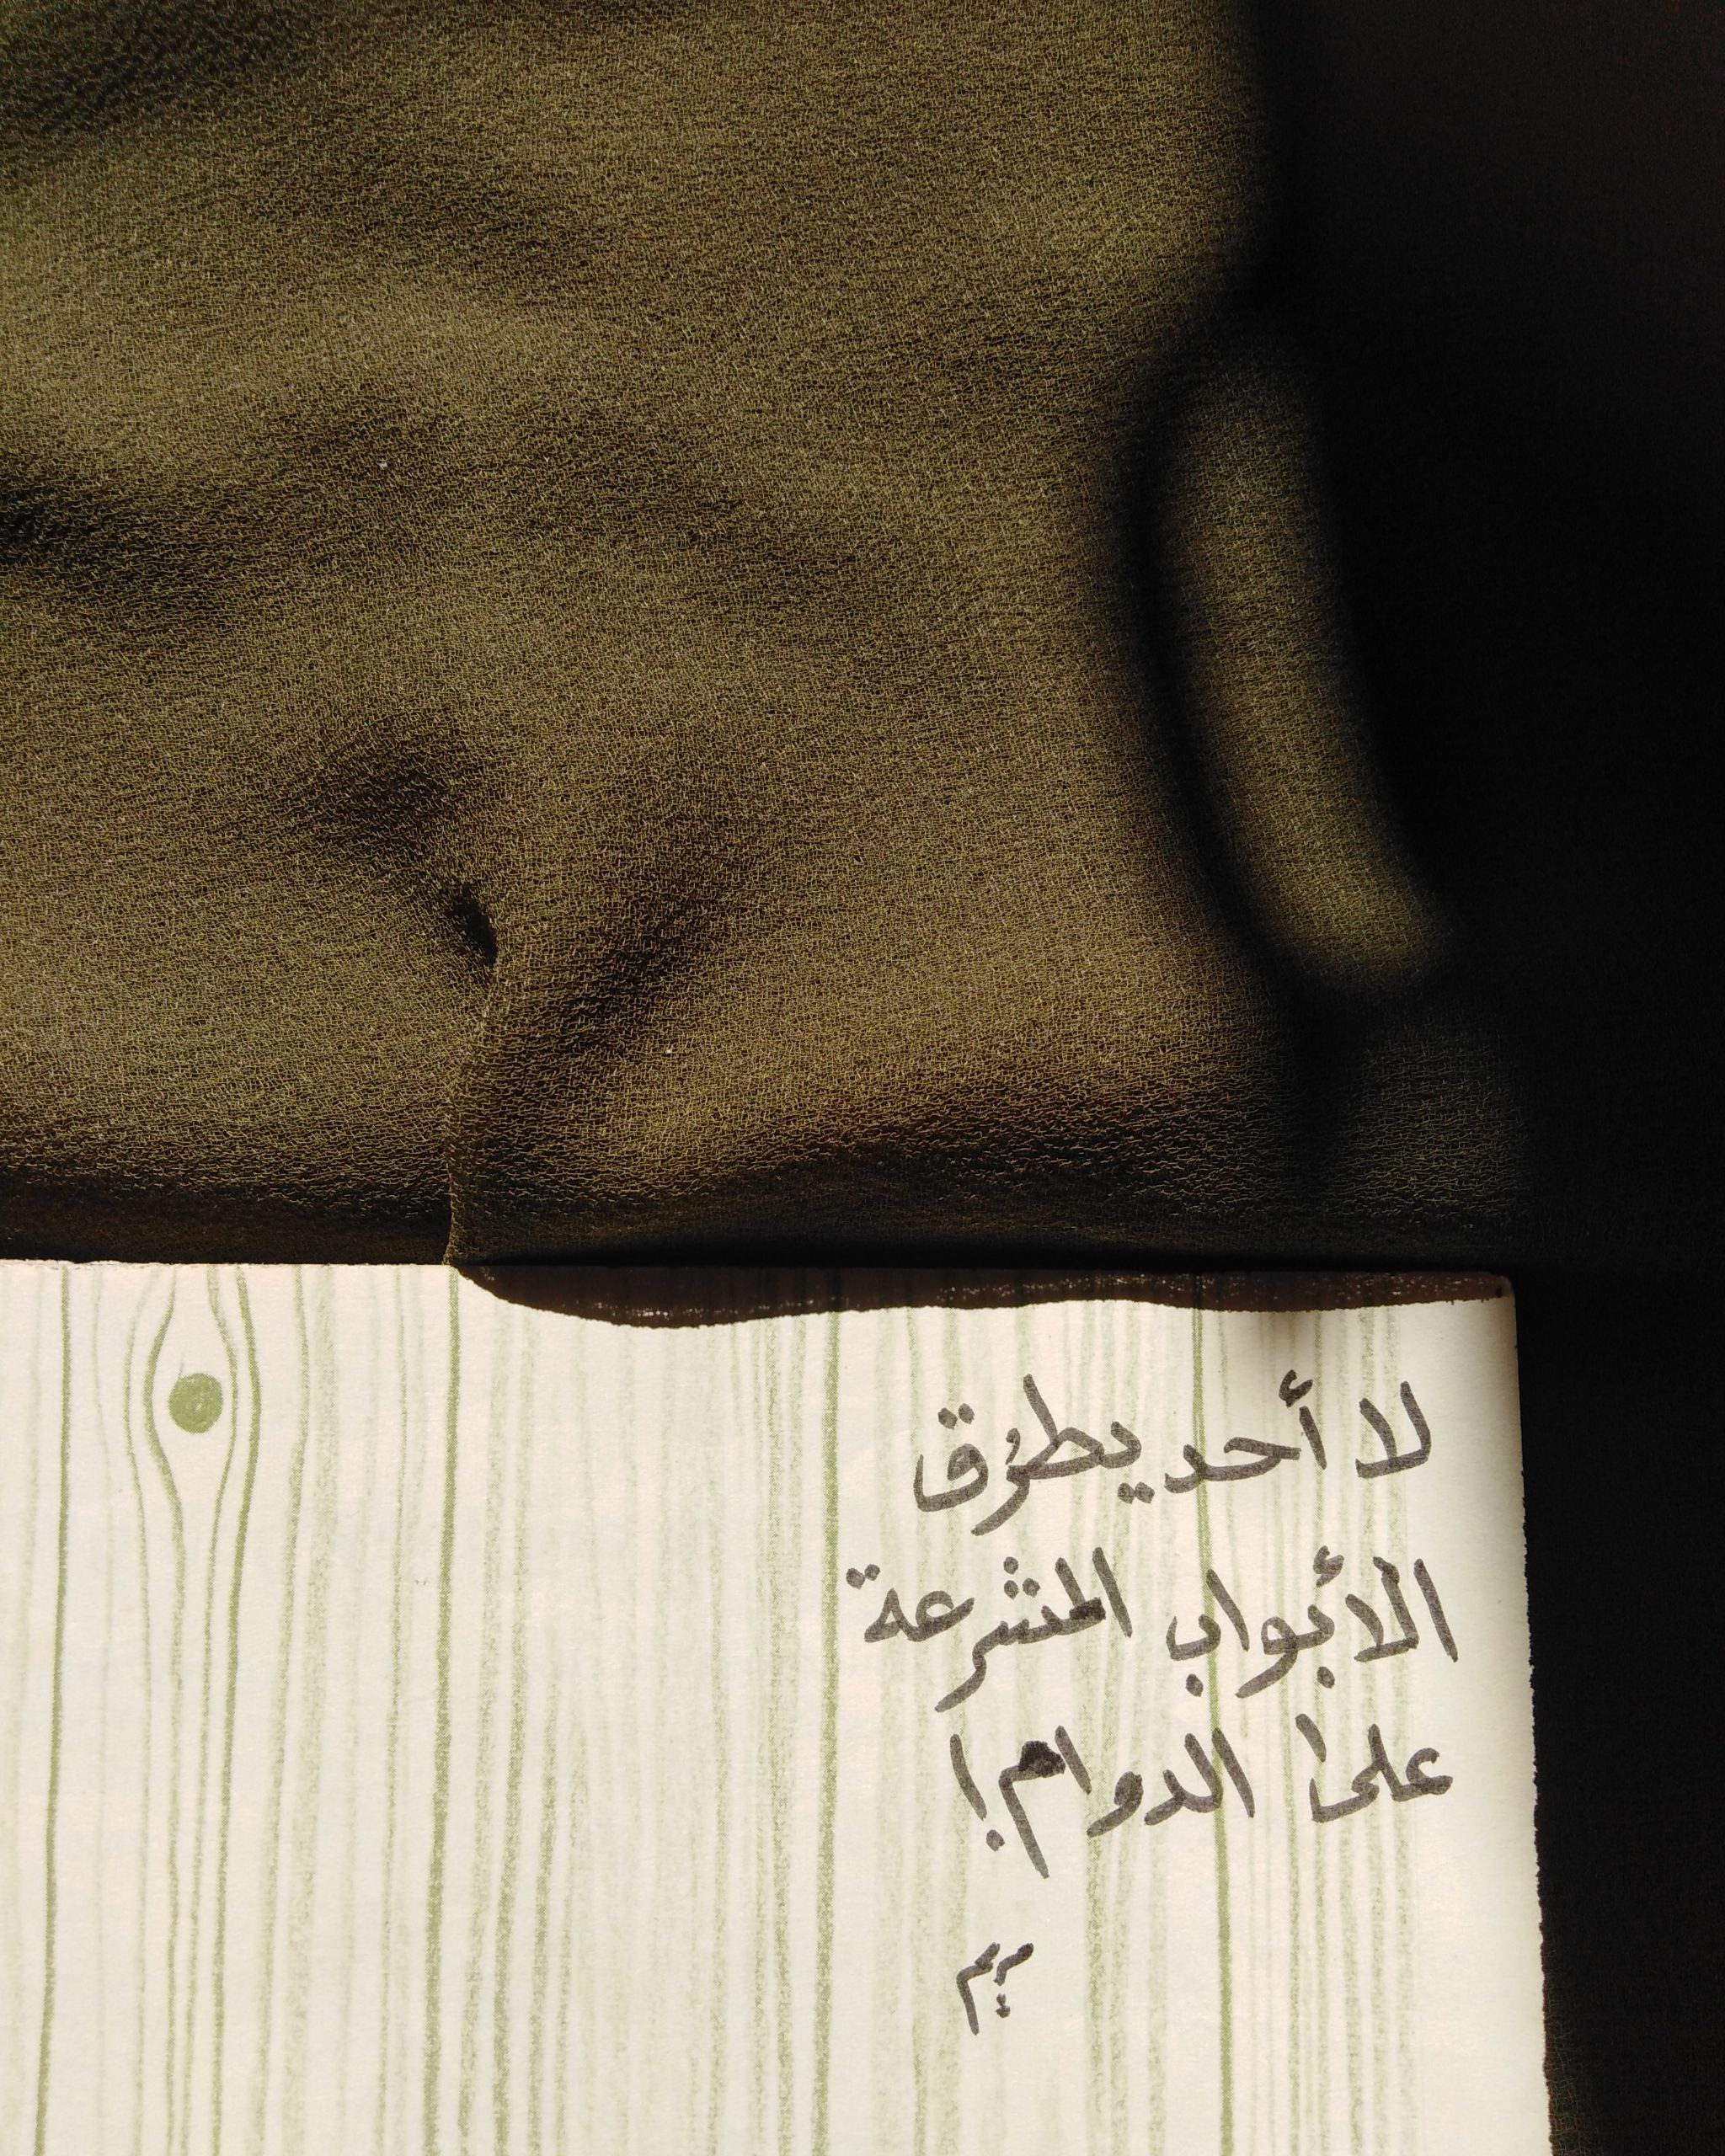 لا أحد يطرُق
الأبواب المشرعة
على الدوام!
مريم